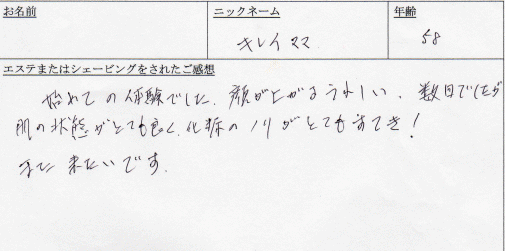 お名前 ニックネーム 年齢
キレイママ 58
エステまたはシェービングをされたご感想
始めての体験でした。顔が上がるうれしい、数日でしたが
肌の状態がとても良く、化粧のノリがとてもすてき!
また来たいです。